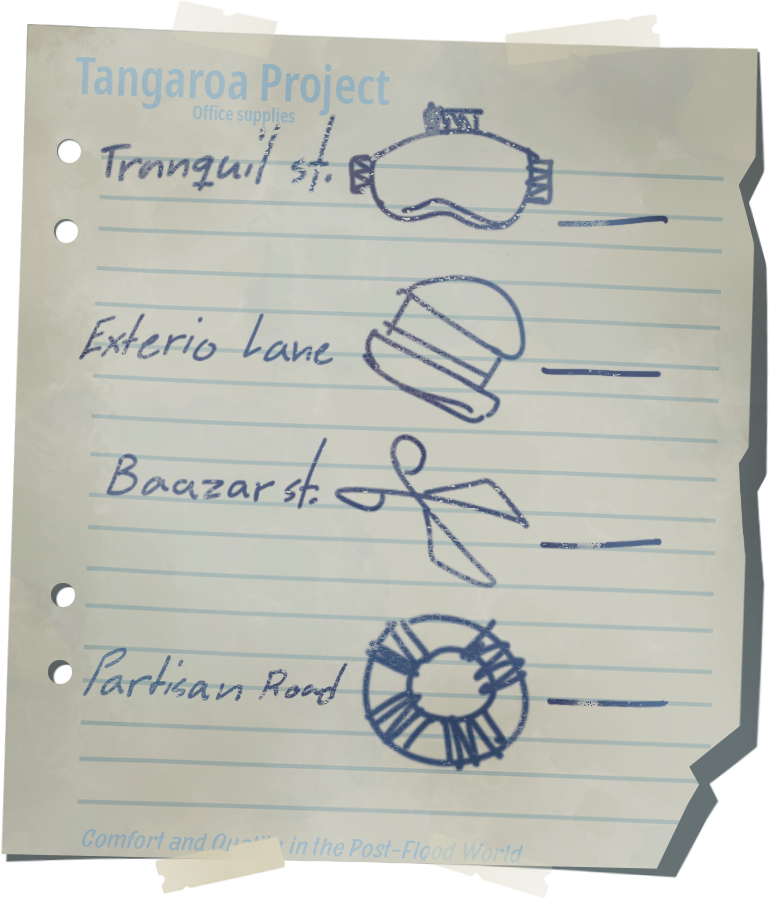 Tangaroa Project
Office supplies
Tranquil st.
Exterio Lane
Baazar st.
Partisan Road
Comfort and Quality in the Post-Flood World